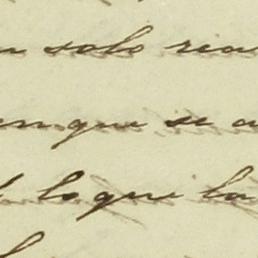 solo rea
unque se a
lo que la